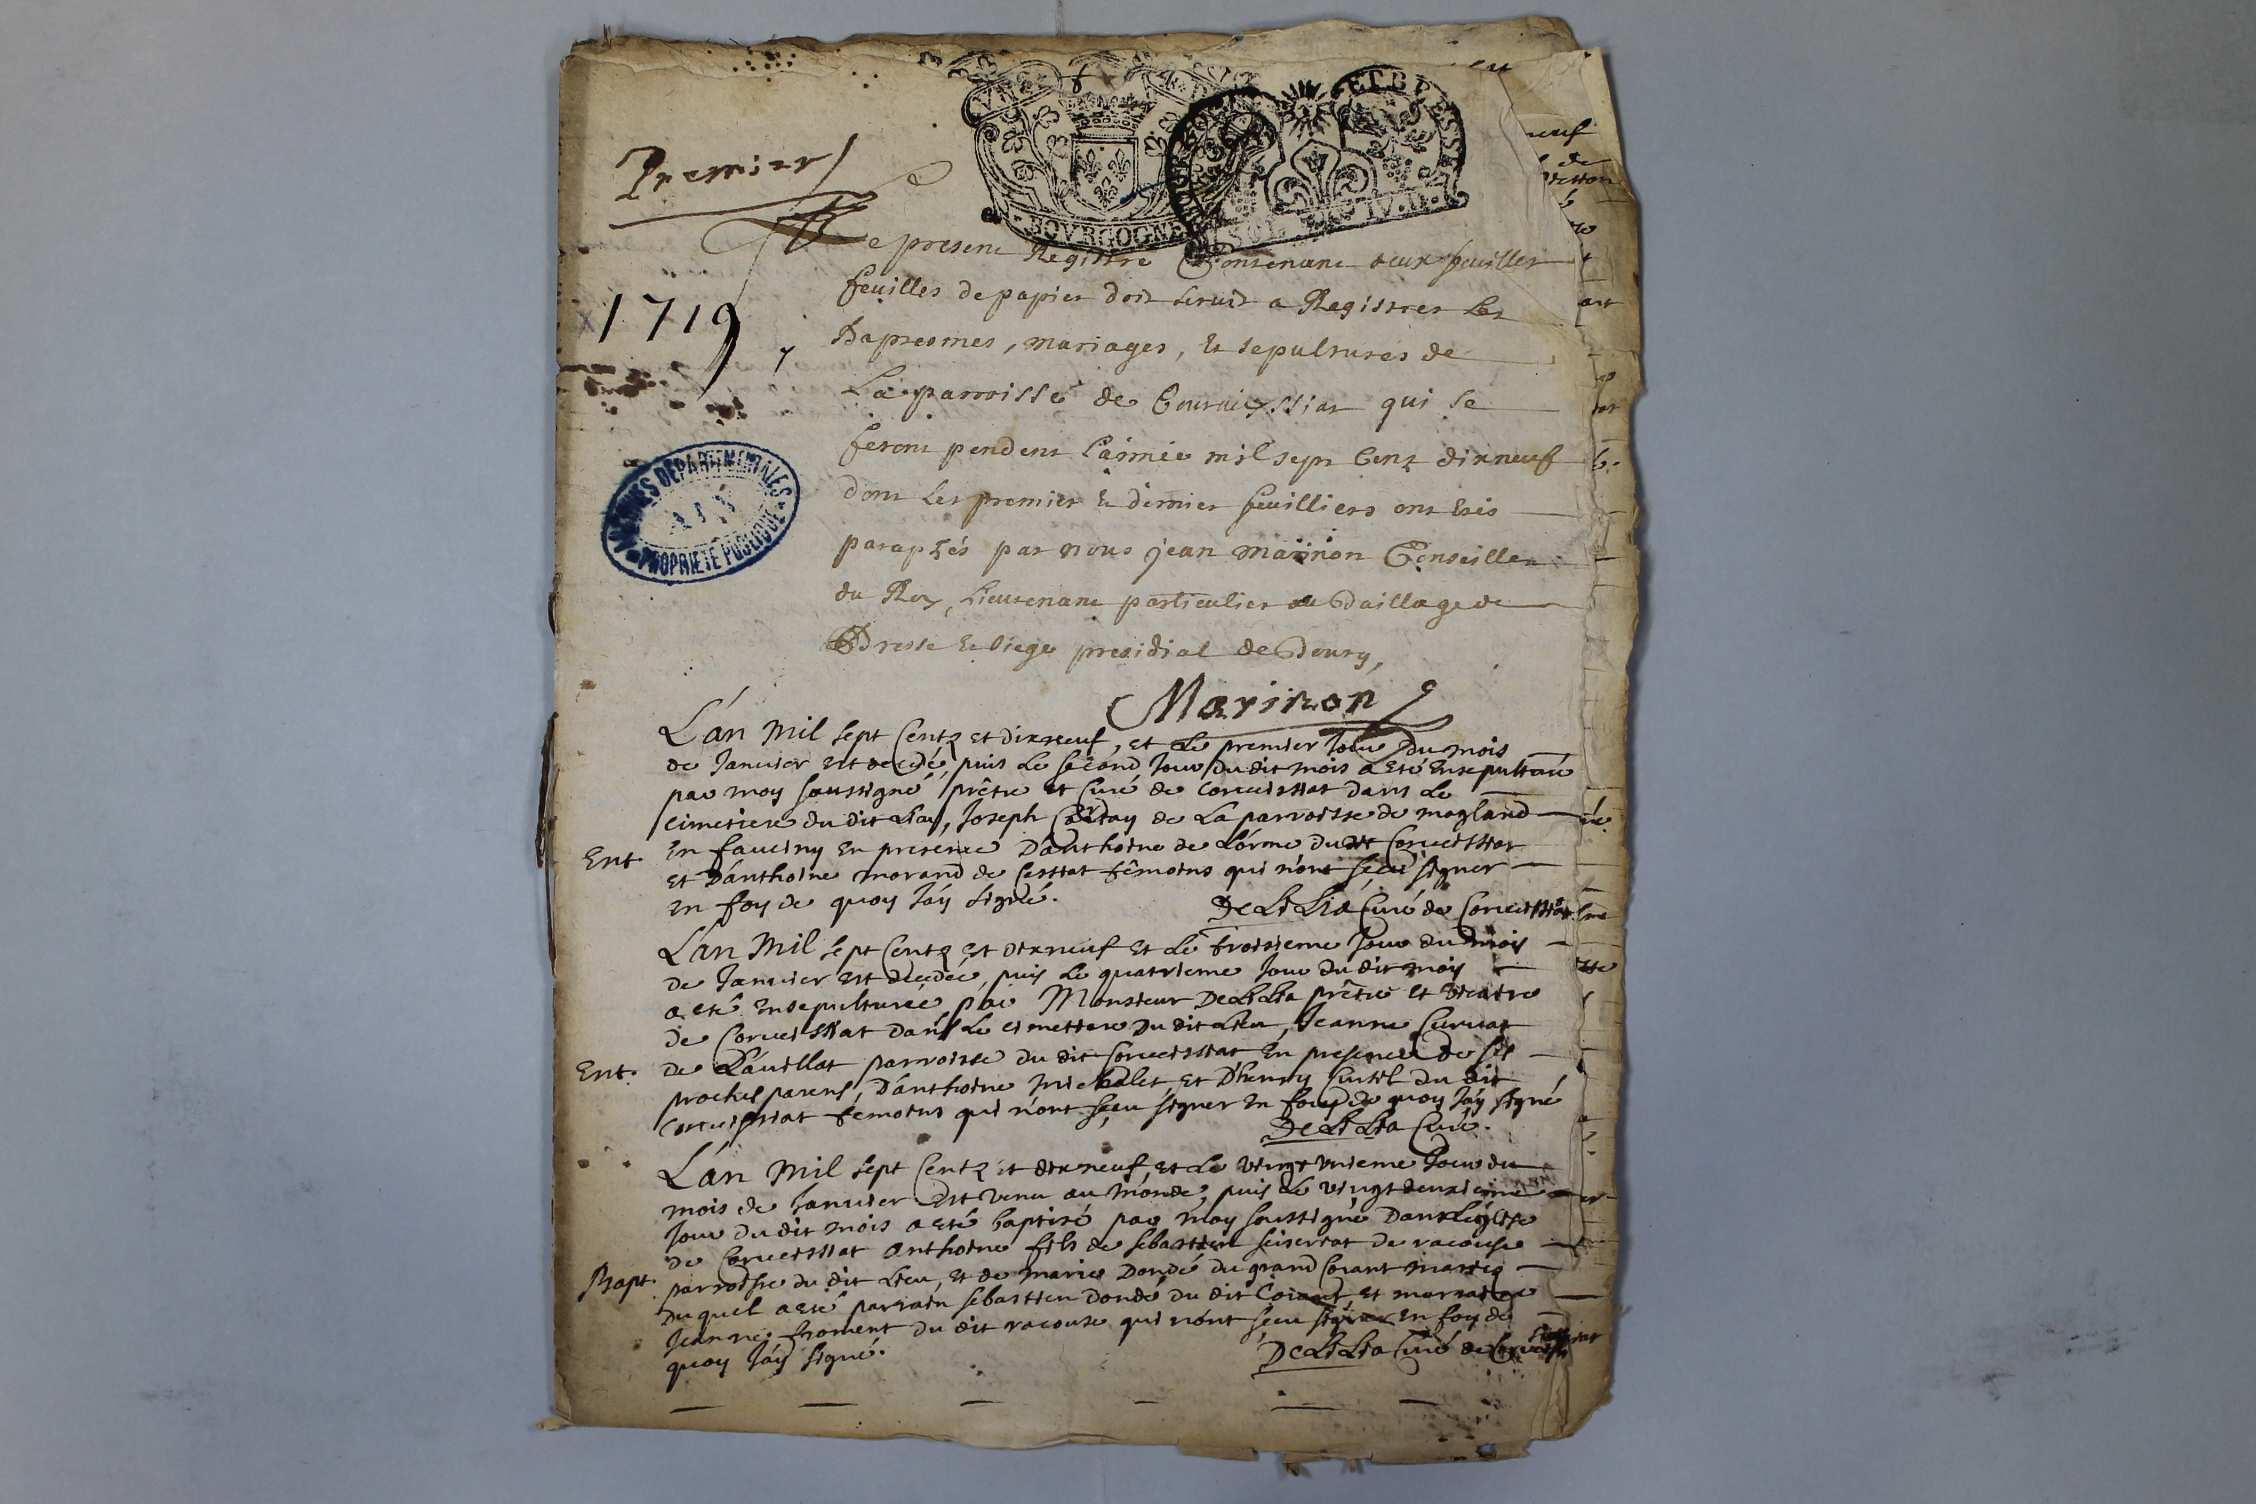 BOVRGOGNE
Premier
1719
Le present Registre Contenant deux feuilles
feuilles de papier doit servir a Registrer les
Baptesmes, mariages, et sepultures de
La parroisse de Courveyssiat qui se
feront pendent l'année mil sept Cent dixneuf
dont les premier et dernier feuilliers ont esté
paraphés par nous jean Marinon Conseiller
du Roy, Lieutenant particulier au Baillage de
Bresse et siege presidial de Bourg,
Marinon
ARCHIVES DEPARTEMENTALES
AIN
PROPRIETE PUBLIQUE
L'an Mil sept Centz et dixneuf, et le premier Jour du mois
de Janvier est decedé, puis le second Jour du dit mois a eté ensepulturé
par moy soussigné, prêtre et Curé de Corveissiat dans le
cimetiere du dit Lieu, Joseph de La parroisse de magland
Ent. en fauciny en presence D'anthoine de Lórme du dit Corveissiat
et D'anthoine morand de Cessiat têmoins qui n'ont sçeu signer
en foy de quoy J'ay signé. DeLiLia Curé de Corveissiat
L'an Mil sept Centz et dixneuf et Le troisieme Jour du mois
de Janvier est decedée, puis Le quatrieme Jour du dit mois
a eté ensepulturée par Monsieur DeLiLia prêtre et vicaire
de Corveissiat dans Le cimettere du dit Lieu, Jeanne Curvat
Ent. de parroisse du dit Corveissiat En presence de ses
proches parens, D'anthoine et D'henry du dit
Corveissiat têmoins qui n'ont sçeu signer en foy de quoy J'ay signé
DeLiLia Curé.
L'an Mil sept Centz et dixneuf, et Le vingt unieme Jour du
mois de Janvier est venu au monde, puis Le vingt deuxieme
Jour du dit mois a eté baptisé par moy soussigné Dans L'église
de Corveissiat Anthoine fils de sebastien de racouse
Bapt. parroisse du dit Lieu, et de marie Dondé du grand Corant mariés
Duquel a eté parrain sebastien Dondé du dit Corant, et marraine
Jeanne froment du dit racouse qui n'ont sçeu signer en foy de
quoy J'ay signé. DeLiLia Curé de Corveissiat